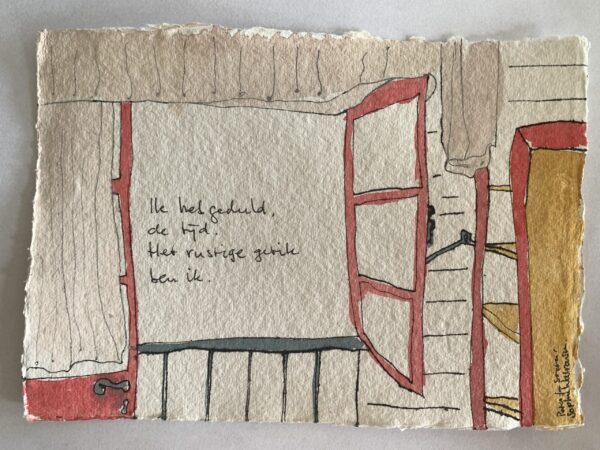 Ik heb geduld,
de tijd.
Het rustige getik
ben ik.